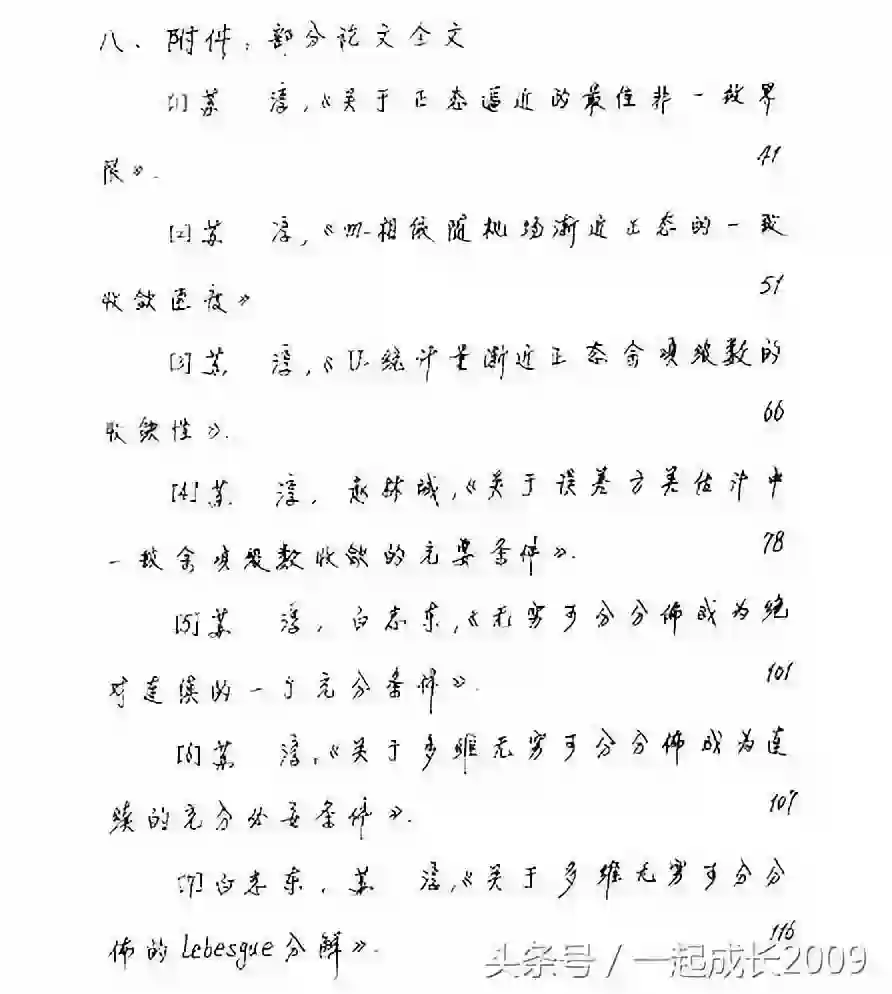 八、附件：部分论文全文
[1]苏 淳,《关于正态逼近的最佳非一致界
限》. 41
[2]苏 淳,《m-相依随机场渐近正态的一致
收敛速度》 51
[3]苏 淳,《U-统计量渐近正态余项级数的
收敛性》. 66
[4]苏 淳, 赵林城,《关于误差方差估计中
一致余项级数收敛的充要条件》. 78
[5]苏 淳, 白志东,《无穷可分分佈成为绝
对连续的一个充分条件》. 101
[6]苏 淳,《关于多维无穷可分分佈成为连
续的充分必要条件》. 107
[7]白志东, 苏 淳,《关于多维无穷可分分
佈的Lebesgue分解》. 116
头条号 / 一起成长2009